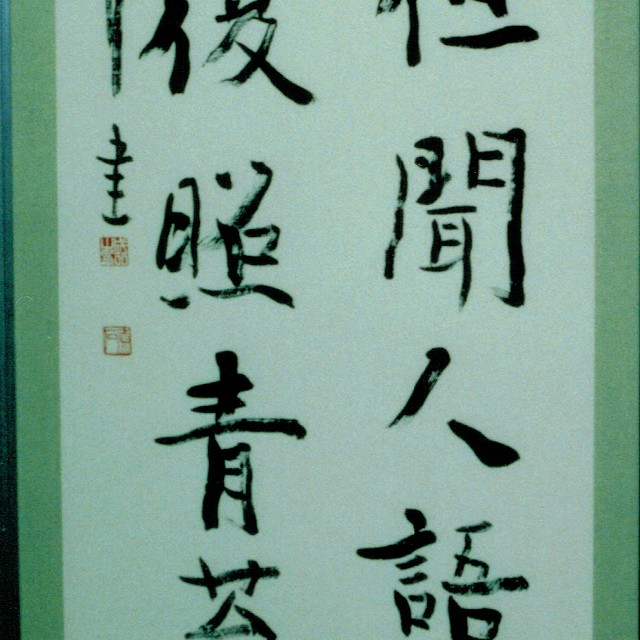 但聞人語
復照青苔
書